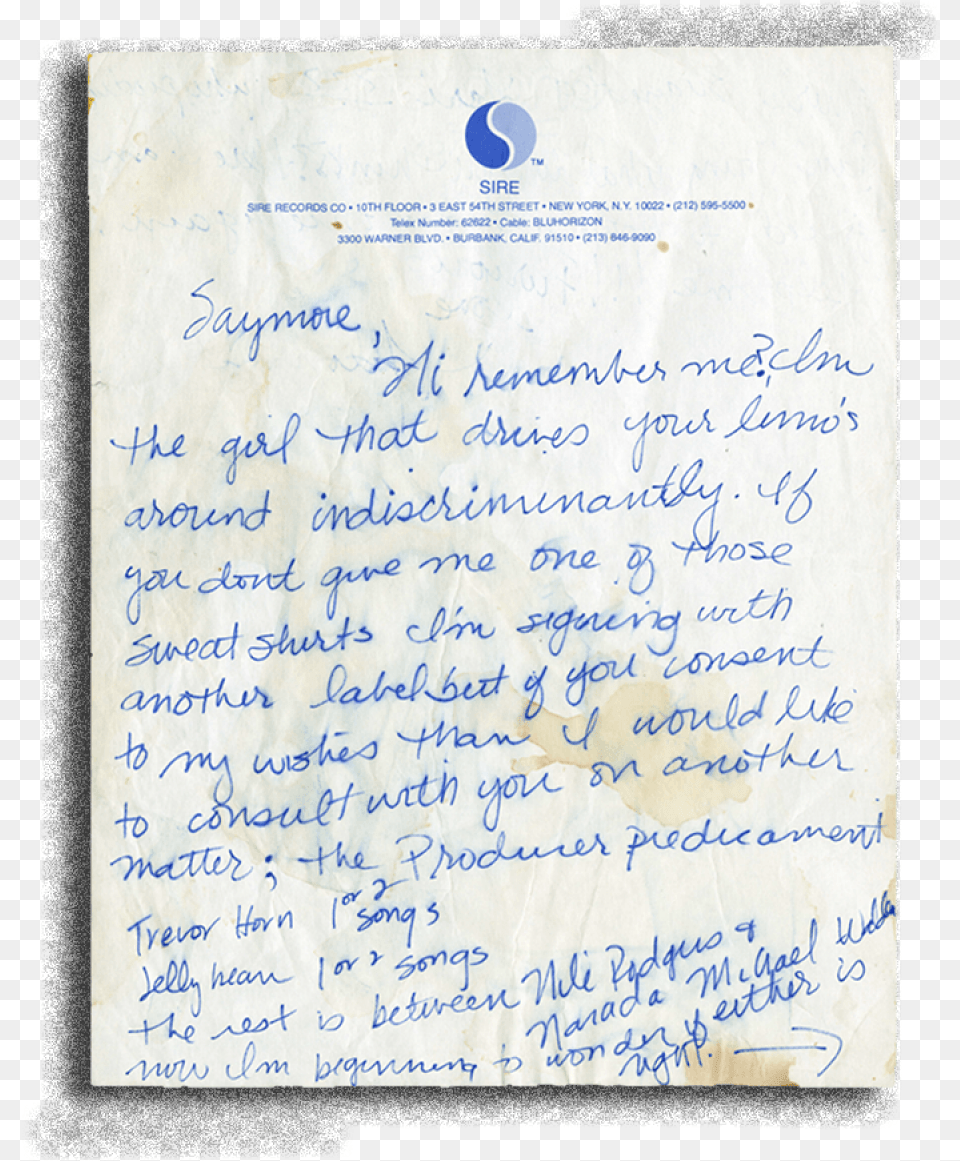 SIRE
SIRE RECORDS CO • 10TH FLOOR • 3 EAST 54TH STREET • NEW YORK, N.Y. 10022 • (212) 595-5500
Telex Number: 62622 • Cable: BLUHORIZON
3300 WARNER BLVD. • BURBANK, CALIF. 91510 • (213) 846-9090
Saymore,
Hi remember me? I'm
the girl that drives your limo's
around indiscriminantly. If
you dont give me one of those
sweat shirts I'm signing with
another label but if you consent
to my wishes than I would like
to consult with you on another
matter; the Producer predicament
Trevor Horn 1 or 2 songs
Jellybean 1 or 2 songs
the rest is between Nile Rodgers &
Narada Michael
now I'm beginning to wonder if either is
right. →